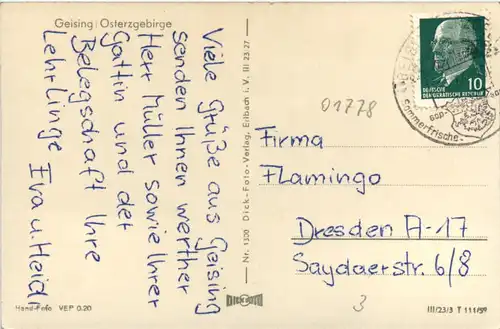 Geising/Osterzgebirge
Viele Grüße aus Geising
senden Ihnen werther
Herr Müller sowie Ihrer
Gattin und der
Belegschaft Ihre
Lehrlinge Eva u. Heidi
Hand-Foto VEP 0.20
Nr. 1300 Dick-Foto-Verlag, Erlbach i. V. III 23 27
DICK FOTO
DEUTSCHE
DEMOKRATISCHE REPUBLIK
10
Sommerfrische
01778
Firma
Flamingo
Dresden A-17
Saydaerstr. 6/8
3
III/23/3 T 111/59